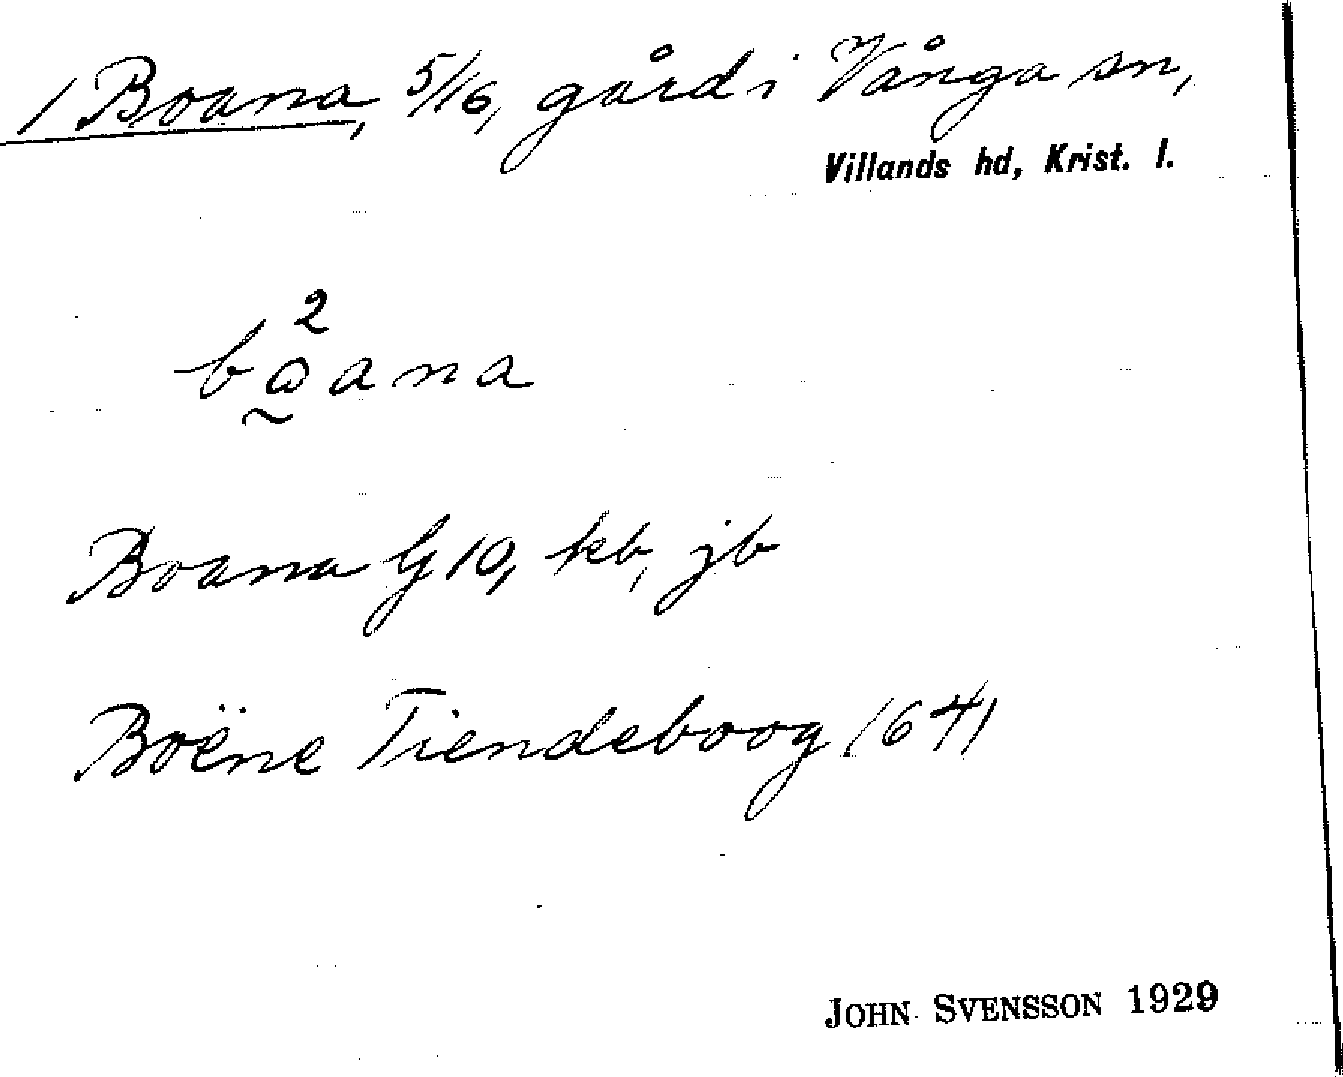 1 Boana, 5/16, gård i Vånga sn,
Villands hd, Krist. l.
2
båana
Boana G 10, kb, jb
Boëne Tiendeboog 1641
JOHN SVENSSON 1929